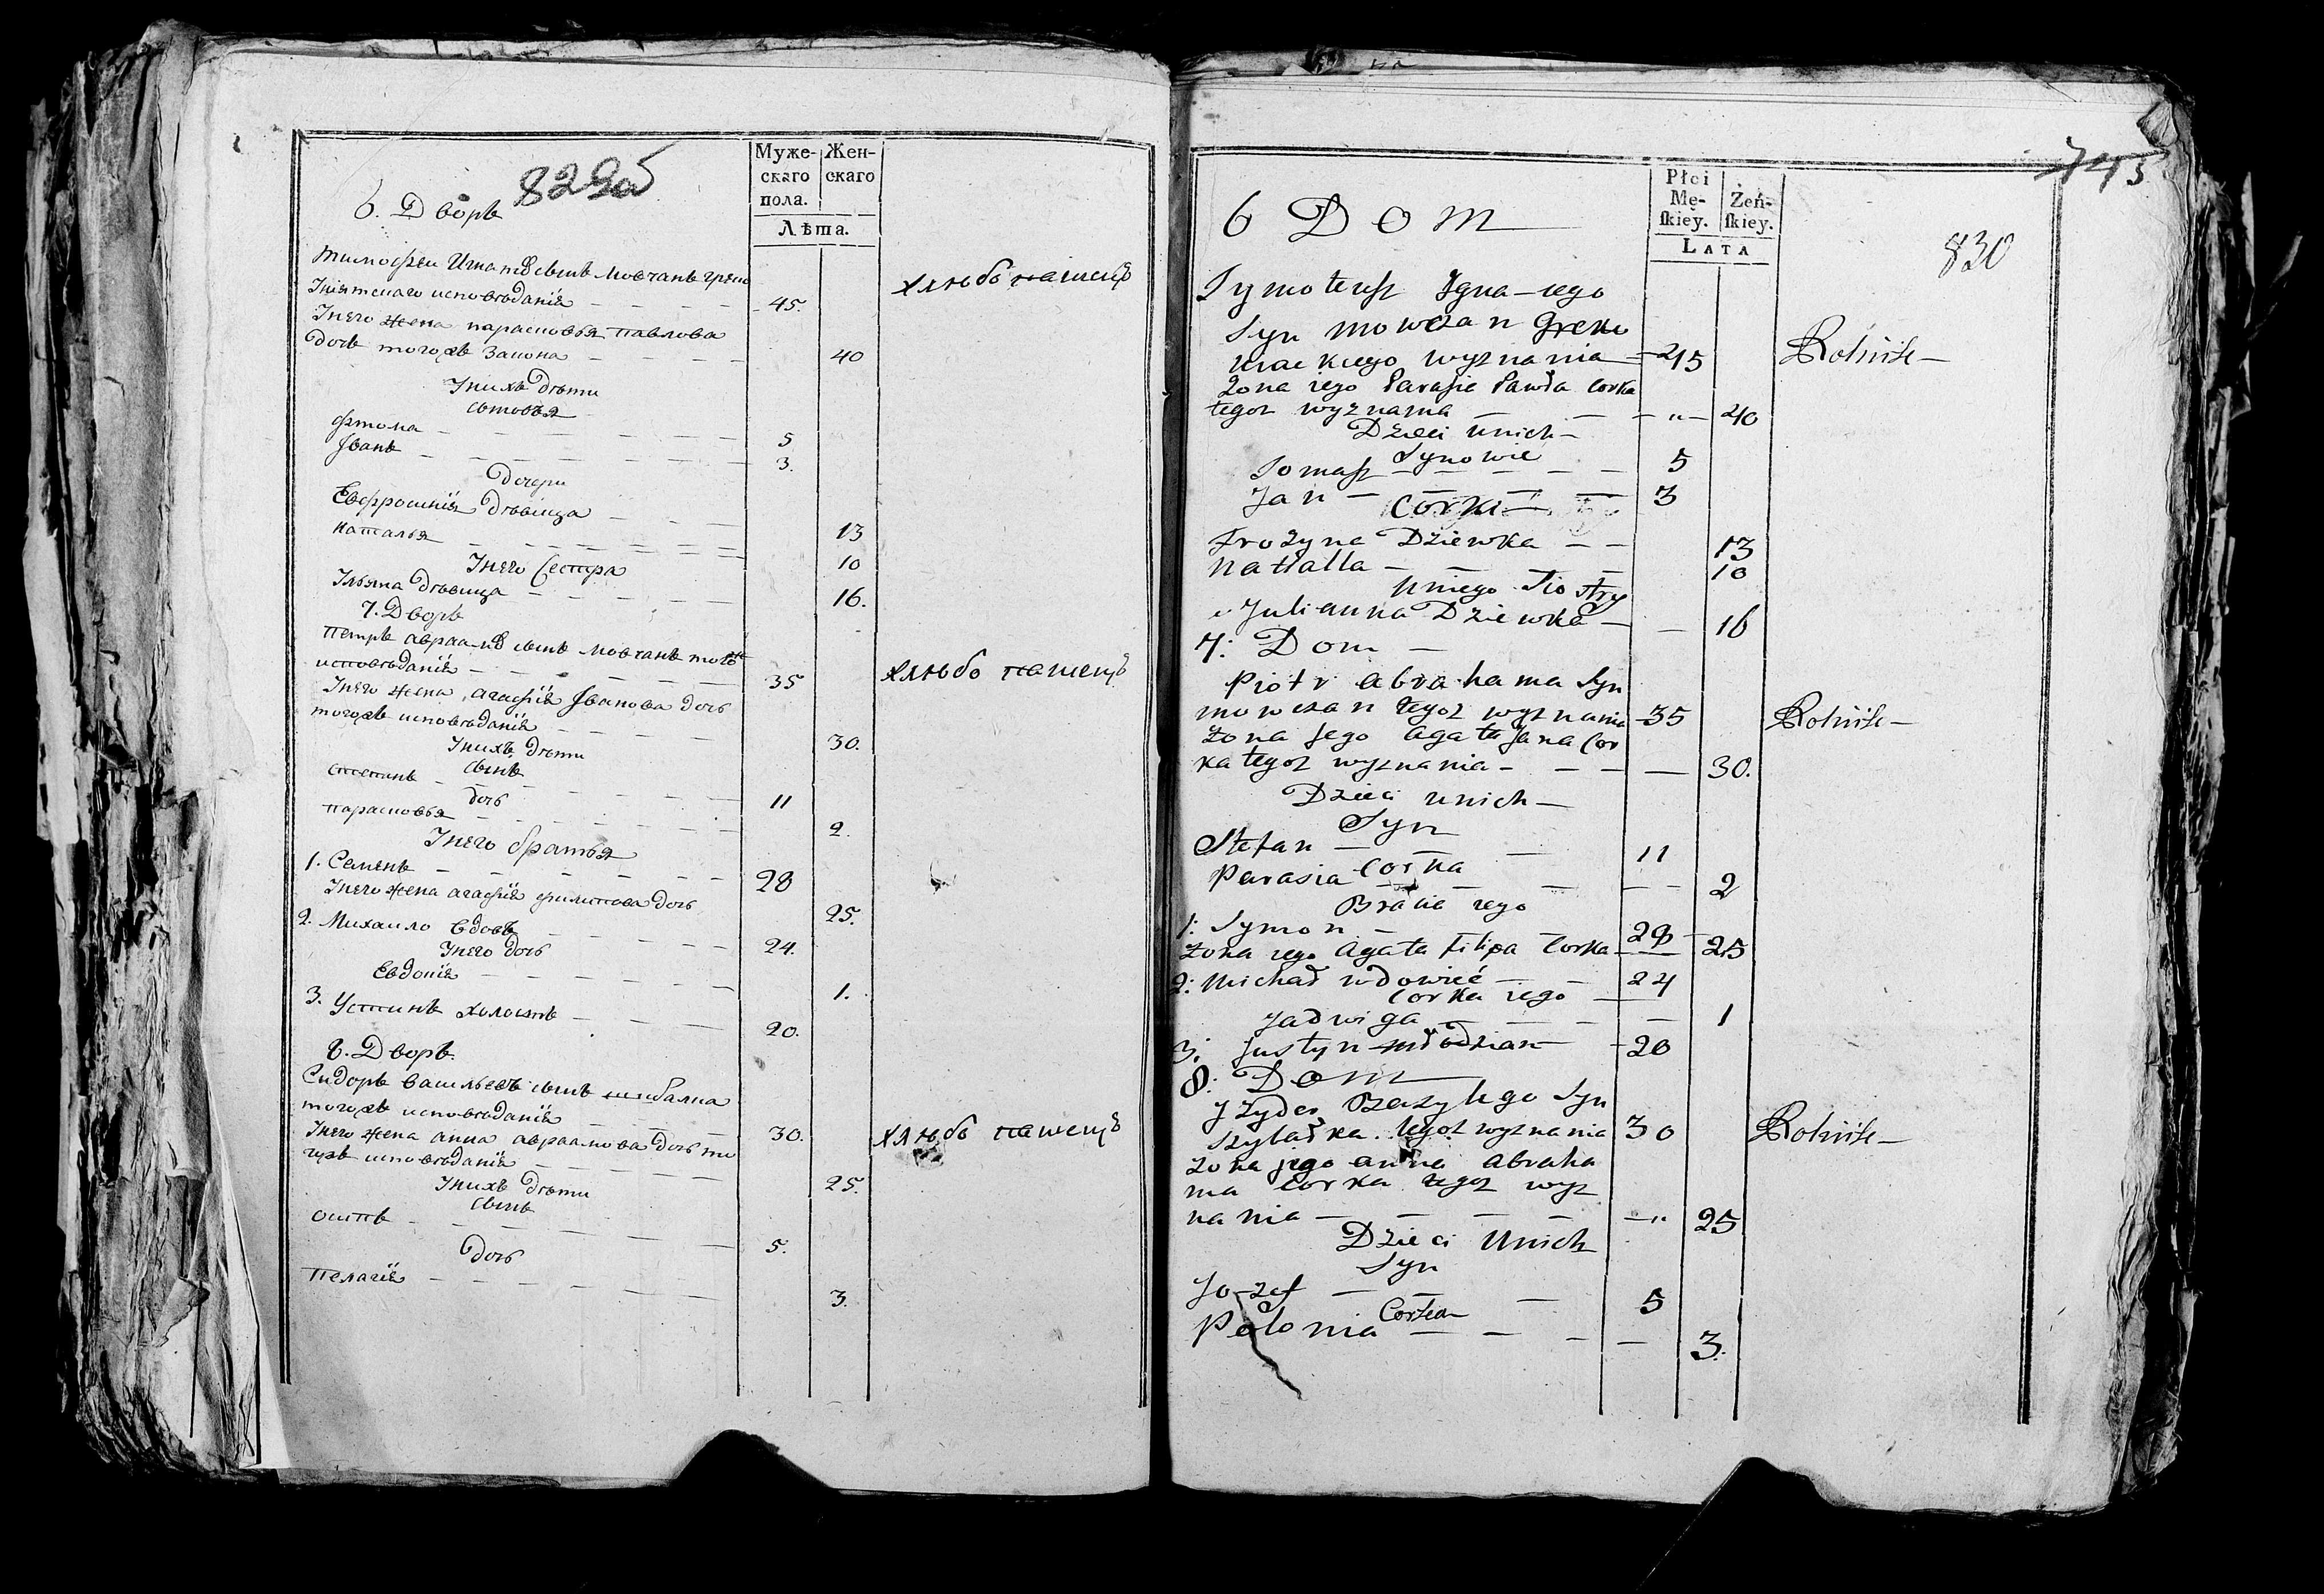 829об
Муже-
скаго
пола.
Жен-
скаго
Лѣта.
6. Дворъ
Тимофеи Игнатⷡ҇ сынъ Мовчанъ греко
Унѣятскаго исповѣданїя 45. хлѣбопашецъ
Унего жена парасковья павлова
дочь тогожъ Закона 40
Унихъ дѣти
сыновья
Фтома 5
Іванъ 3.
Дочери
Евфросинїя дѣвица 13
наталья 10
Унего Сестра
Ульяна дѣвица 16.
7. Дворъ
Петръ авраа-въ сынъ Мовчанъ тогожъ
исповѣданїя 35 хлѣбопашецъ
Унего жена агафїя Іванова дочь
тогожъ исповѣданїя 30.
Унихъ дѣти
сынъ
степанъ 11
дочь
парасковья 2.
Унего братья
1. Семенъ 28
Унего жена агафїя филипова дочь 25.
2. Михаило вдовъ 24.
Унего дочь
Евдокїя 1.
3. Устинъ холостъ 20.
8. Дворъ.
Сидоръ васильевъ сынъ
тогожъ исповѣданїя 30. хлѣбопашецъ
Унего жена анна авраамова дочь то
гожъ исповѣданїя 25.
Унихъ дѣти
сынъ
осипъ 5.
Дочь
пелагїя 3.
743
830
Płci
Mę-
ſkiey.
Żeń-
ſkiey.
LATA
6 Dom
Tymoteusz Igna-cego
Syn mowczan Greko
Urackiego wyznania 45 Rolnik
Zona iego Parasie Pawła Corka
tegoz wyznania 40
Dzieci unich
Synowie
Tomasz 5
Jan 3
Corki
Frozyna Dziewka 13
Natialla 10
Uniego Siostry
Julianna Dziewka 16
7: Dom
Piotr abrahama Syn
mowczan tegoz wyznania 35 Rolnik
Zona jego agata Jana Cor
ka tegoz wyznania 30.
Dzieci unich
Syn
Stefan 11
Corka
Parasia 2
Bracia iego
1: Symon 28
Zona iego agata Filipa Corka 25
2: Michał wdowiec 24
Corka iego
Jadwiga 1
3: Justyn młodzian 20
8: Dom
Jzydor Bazylego Syn
Szybałka tegoz wyznania 30 Rolnik
Zona jego anna abraha
ma Corka tegoz wyz
nania 25
Dzieci unich
Syn
Jozef 5
Corka
Polonia 3.